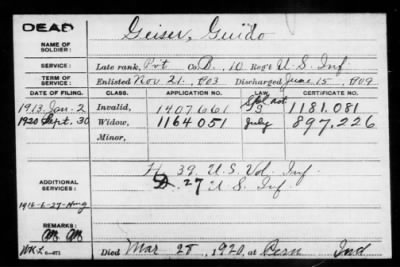 DEAD
Geiser, Guido
NAME OF SOLDIER:
SERVICE: Late rank, Pvt Co. D, 10 Reg't U.S. Inf
TERM OF SERVICE: Enlisted Nov 21, 1903 Discharged June 15, 1909
DATE OF FILING. CLASS. APPLICATION NO. LAW. CERTIFICATE NO.
1913 Jan. 2 Invalid, 1407661 1181.081
1920 Sept. 30 Widow, 1164051 897,226
Minor,
ADDITIONAL SERVICES:
H 39. U.S. Vol. Inf.
D. 27 U.S. Inf.
REMARKS:
Died Mar 28, 1920, at Ind